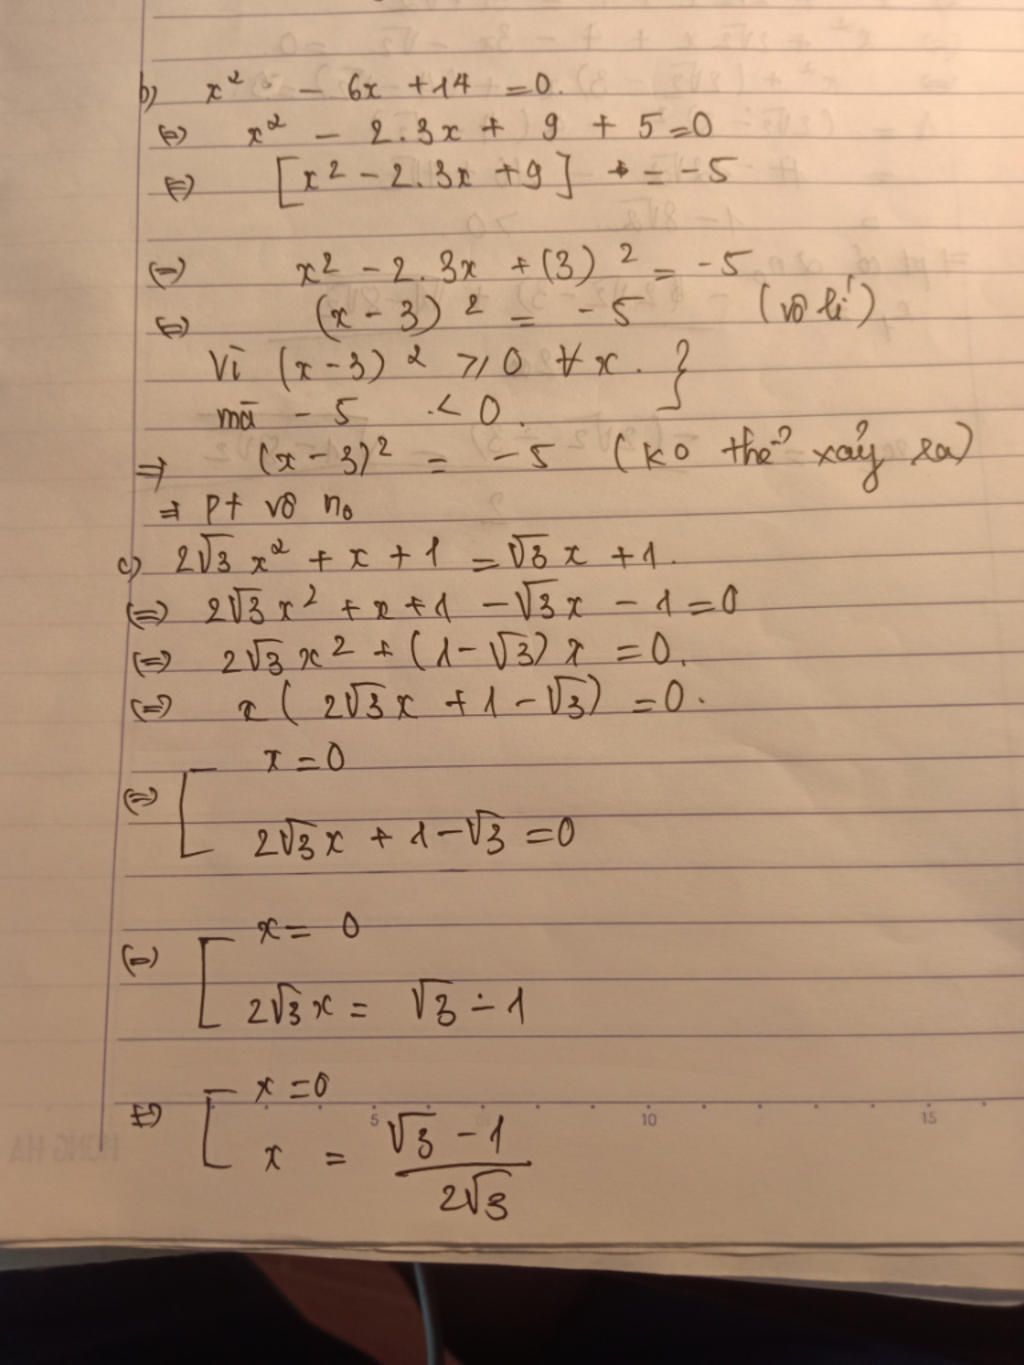 b) x² - 6x + 14 = 0.
(=) x² - 2.3x + 9 + 5 = 0
(=) [x² - 2.3x + 9] = -5
(=) x² - 2.3x + (3)² = -5
(=) (x - 3)² = -5 (vô lí)
Vì (x - 3)² ⩾ 0 ∀x. }
mà - 5 < 0.
=> (x - 3)² = -5 (ko thể xảy ra)
=> pt vô no
c) 2√3 x² + x + 1 = √3 x + 1.
(=) 2√3 x² + x + 1 - √3 x - 1 = 0
(=) 2√3 x² + (1 - √3) x = 0.
(=) x ( 2√3 x + 1 - √3) = 0.
(=) [ x = 0
2√3 x + 1 - √3 = 0
(=) [ x = 0
2√3 x = √3 - 1
(=) [ x = 0
5 10 15
x = (√3 - 1)/(2√3)